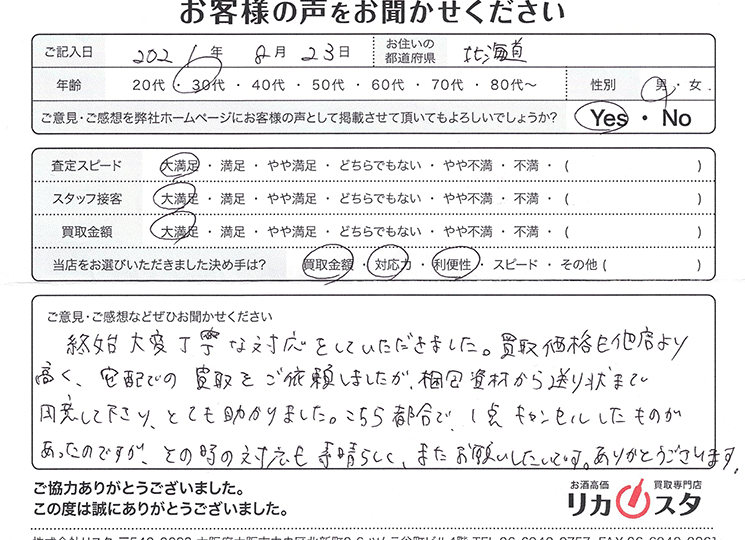 お客様の声をお聞かせください
ご記入日 2021年 8月 23日 お住いの都道府県 北海道
年齢 20代・30代・40代・50代・60代・70代・80代〜 性別 男・女.
ご意見・ご感想を弊社ホームページにお客様の声として掲載させて頂いてもよろしいでしょうか? Yes・No
査定スピード 大満足・満足・やや満足・どちらでもない・やや不満・不満・( )
スタッフ接客 大満足・満足・やや満足・どちらでもない・やや不満・不満・( )
買取金額 大満足・満足・やや満足・どちらでもない・やや不満・不満・( )
当店をお選びいただきました決め手は? 買取金額・対応力・利便性・スピード・その他( )
ご意見・ご感想などぜひお聞かせください
終始大変丁寧な対応をしていただきました。買取価格も他店より
高く、宅配での買取をご依頼しましたが、梱包資材から送り状まで
用意して下さり、とても助かりました。こちら都合で、1点キャンセルしたものが
あったのですが、その時の対応も素晴らしく、またお願いしたいです。ありがとうございます。
ご協力ありがとうございました。
この度は誠にありがとうございました。
お酒高価 買取専門店
リカスタ